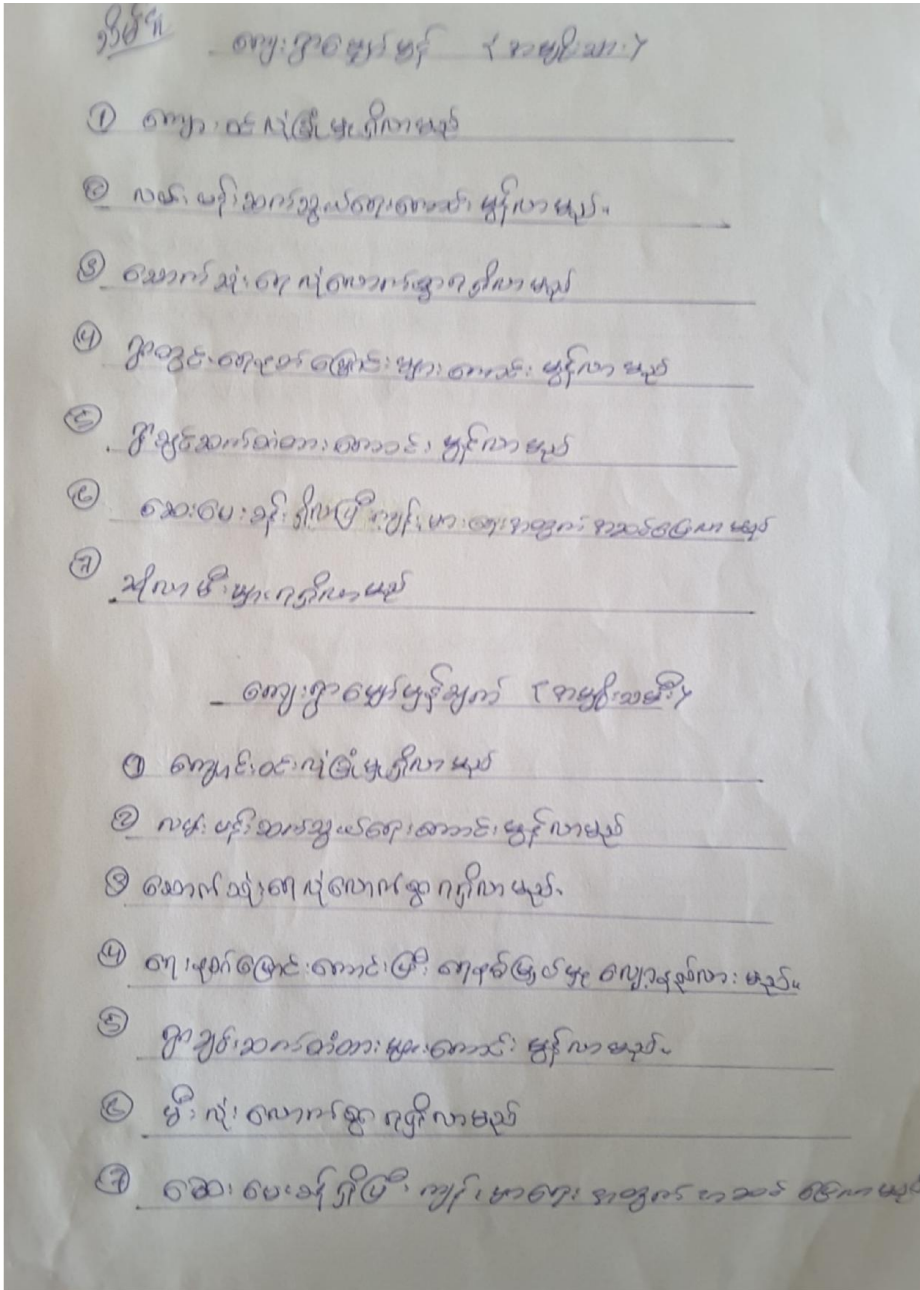 ကျေးရွာမျှော်မှန်း (အမျိုးသား)
① ကျောင်းဝင်းလုံခြုံမှုရှိလာမည်
② လမ်းပန်းဆက်သွယ်ရေးကောင်းမွန်လာမည်။
③ သောက်သုံးရေလုံလောက်စွာရရှိလာမည်
④ ရွာတွင်းရေနုတ်မြောင်းများကောင်းမွန်လာမည်
⑤ ရွာချင်းဆက်တံတားကောင်းမွန်လာမည်
⑥ ဆေးပေးခန်းရှိလာပြီးကျန်းမာရေးအတွက်အဆင်ပြေလာမည်
⑦ ဆိုလာမီးများရရှိလာမည်
ကျေးရွာမျှော်မှန်းချက် (အမျိုးသမီး)
① ကျောင်းဝင်းလုံခြုံမှုရှိလာမည်
② လမ်းပန်းဆက်သွယ်ရေးကောင်းမွန်လာမည်
③ သောက်သုံးရေလုံလောက်စွာရရှိလာမည်။
④ ရေနုတ်မြောင်းကောင်းပြီးရေနစ်မြုပ်မှုလျော့နည်းလားမည်။
⑤ ရွာချင်းဆက်တံတားများကောင်းမွန်လာမည်။
⑥ မီးလုံလောက်စွာရရှိလာမည်
⑦ ဆေးပေးခန်းရှိပြီးကျန်းမာရေးအတွက်အဆင်ပြေလာမည်